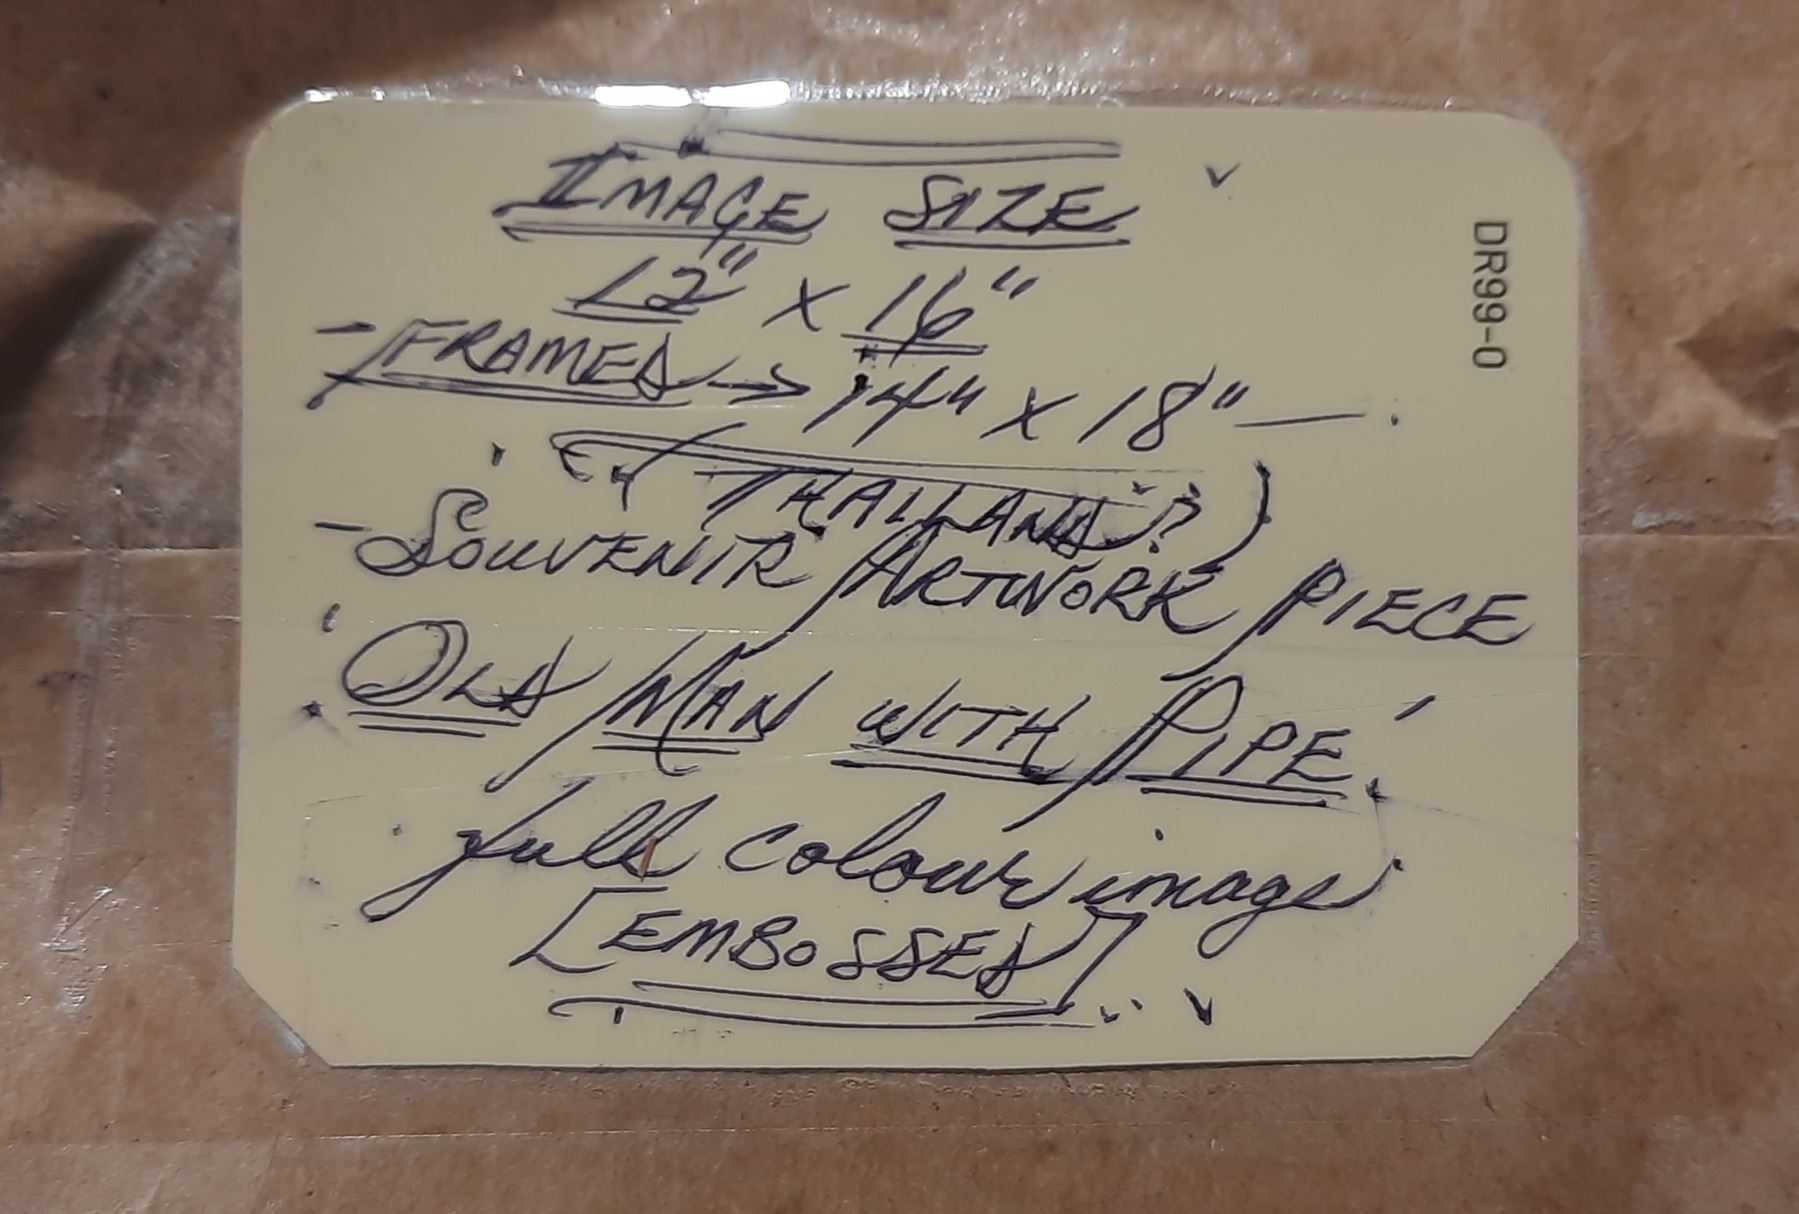 IMAGE SIZE
12" x 16"
- FRAMED → 14" x 18" — .
(THAILAND?)
- SOUVENIR ARTWORK PIECE
'OLD MAN WITH PIPE.'
full colour image
[EMBOSSED]...
DR99-0